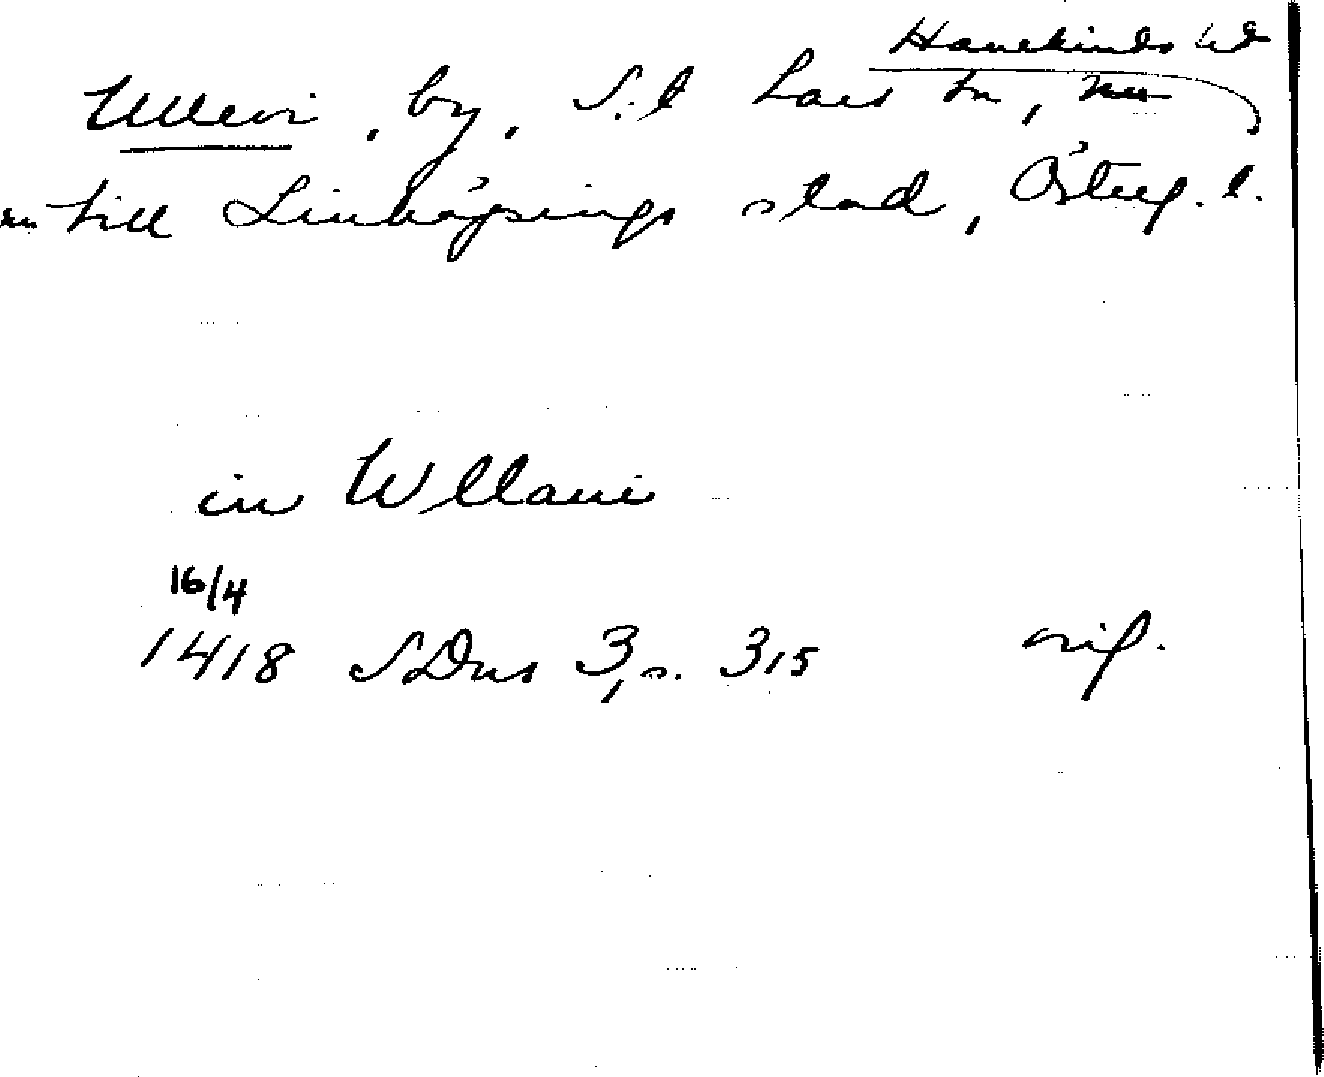 Hanekinds hd
Ullevi, by, S:t Lars sn, nu
till Linköpings stad, Österg. l.
in Wllaui
16/4
1418 SDns 3, s. 315 orig.